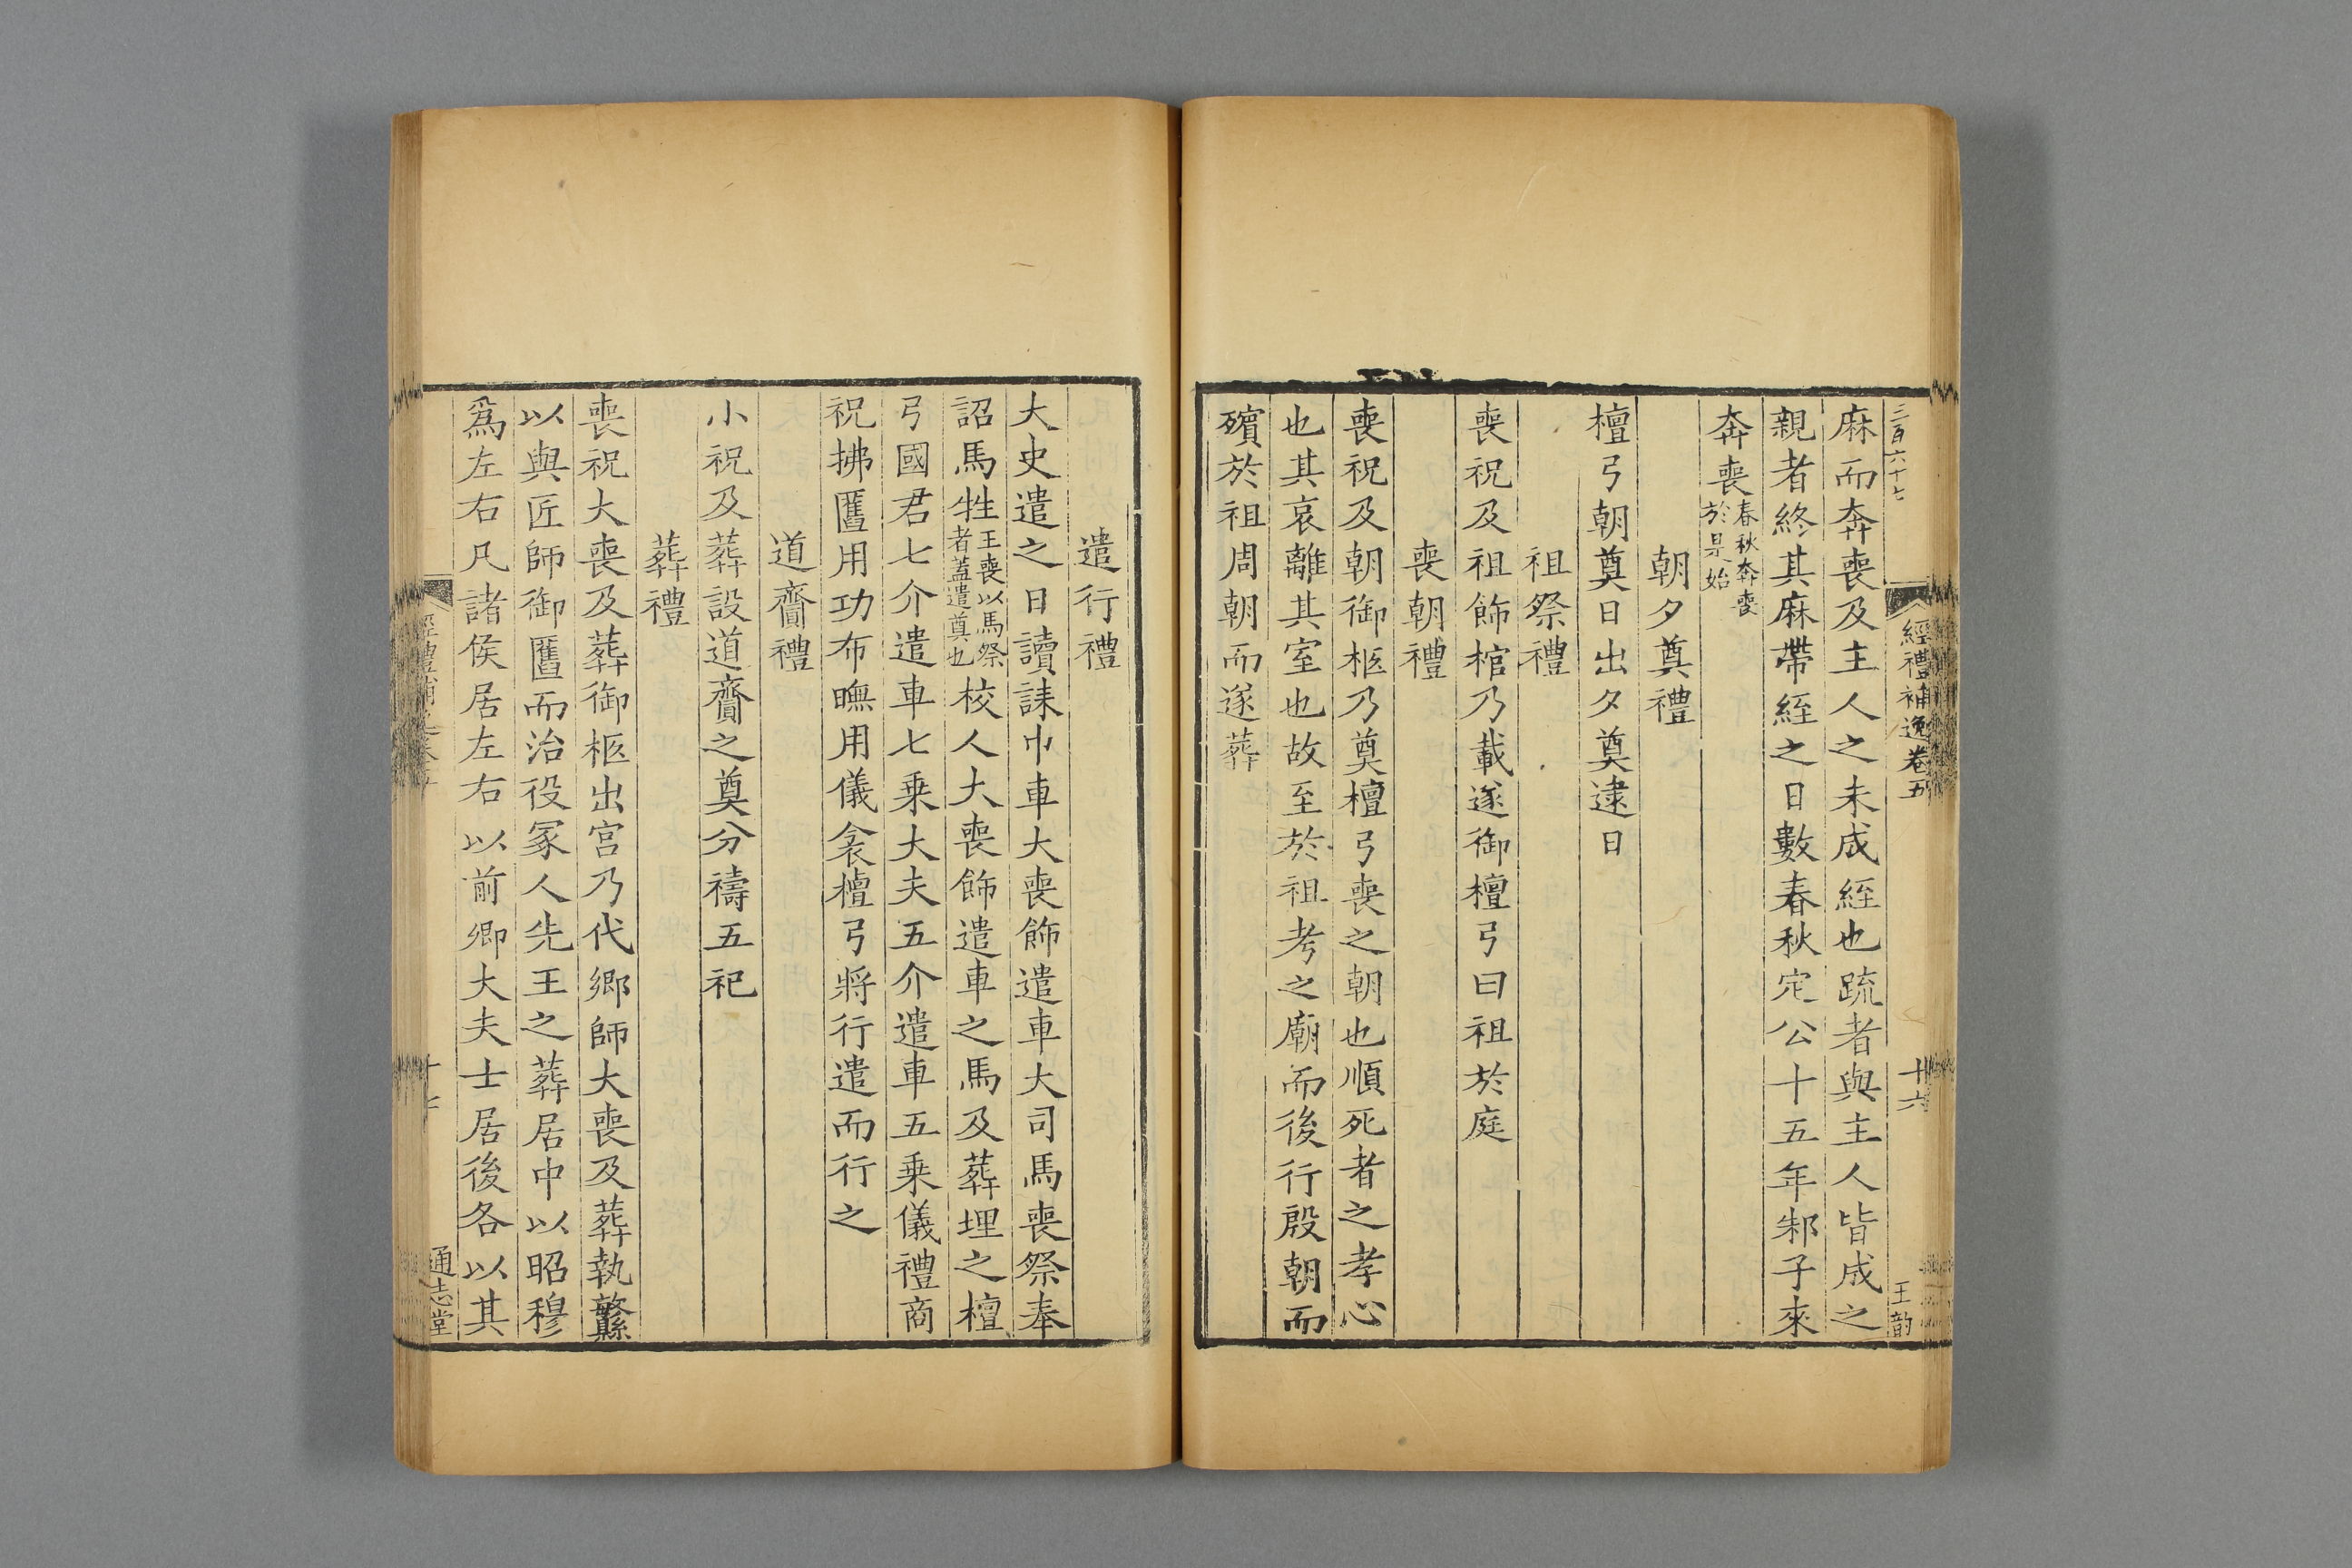 三百六十七
經禮補逸卷五
十六
王韵
麻而奔喪及主人之未成絰也疏者與主人皆成之
親者終其麻帶絰之日數春秋定公十五年邾子來
奔喪春秋奔喪於是始
朝夕奠禮
檀弓朝奠日出夕奠逮日
祖祭禮
喪祝及祖飾棺乃載遂御檀弓曰祖於庭
喪朝禮
喪祝及朝御柩乃奠檀弓喪之朝也順死者之孝心
也其哀離其室也故至於祖考之廟而後行殷朝而
殯於祖周朝而遂葬
遣行禮
大史遣之日讀誄巾車大喪飾遣車大司馬喪祭奉
詔馬牲王喪以馬祭者蓋遣奠也校人大喪飾遣車之馬及葬埋之檀
弓國君七介遣車七乗大夫五介遣車五乗儀禮商
祝拂匶用功布幠用儀衾檀弓將行遣而行之
道齎禮
小祝及葬設道齎之奠分禱五祀
葬禮
喪祝大喪及葬御柩出宮乃代鄉師大喪及葬執纛
以與匠師御匶而治役冢人先王之葬居中以昭穆
爲左右凡諸侯居左右以前卿大夫士居後各以其
經禮補逸卷五
十七
通志堂